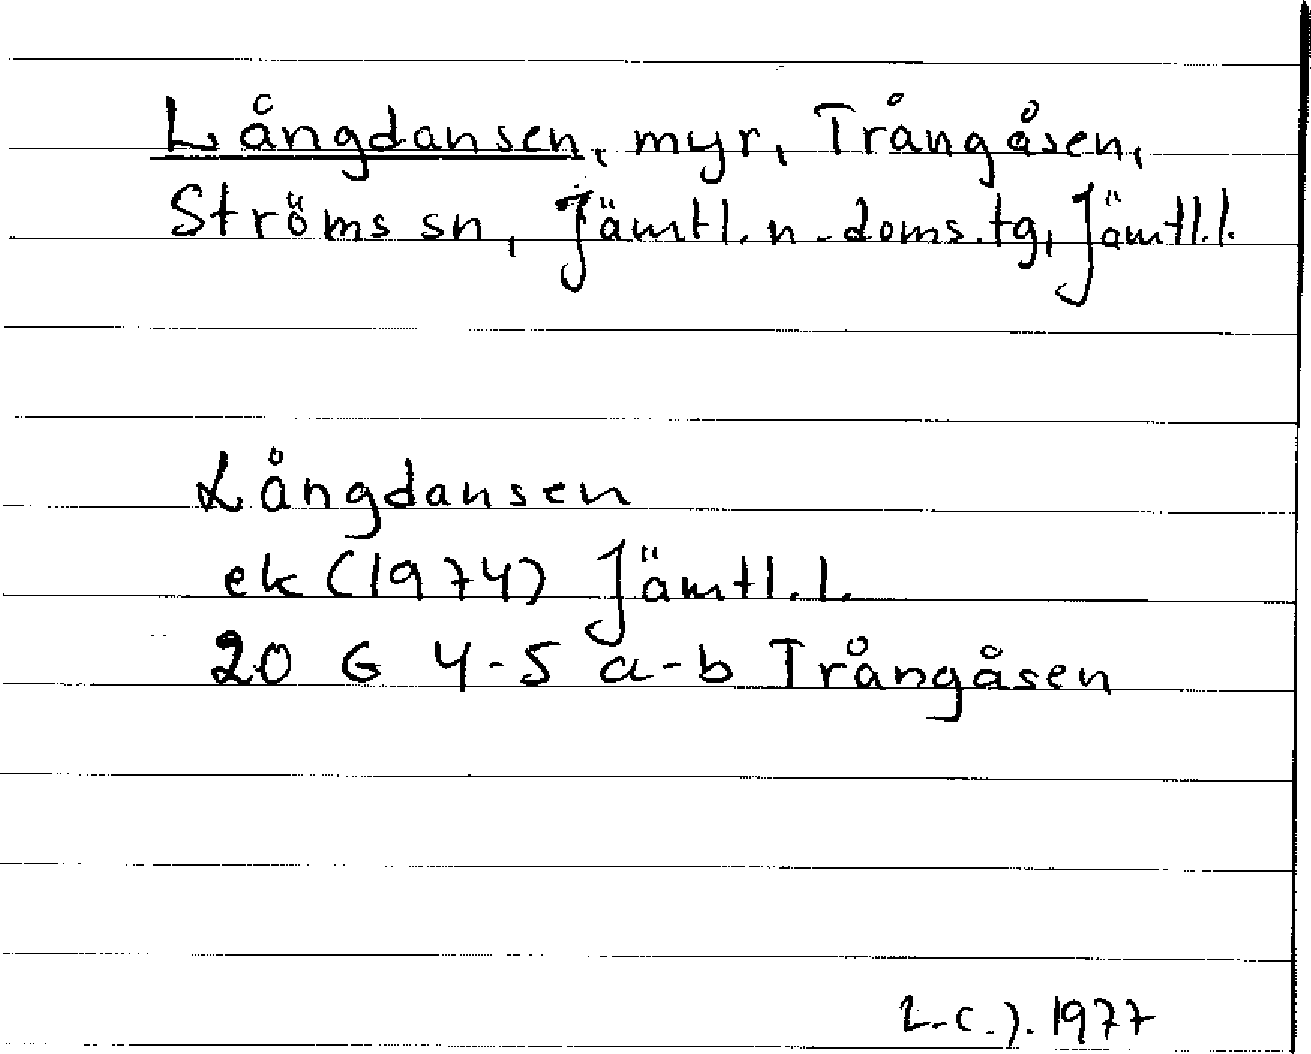 Långdansen, myr, Trångåsen,
Ströms sn, Jämtl. n. doms.tg, Jämtl.l.
Långdansen
ek (1974) Jämtl. l.
20 G 4-5 a-b Trångåsen
L.C.J. 1977